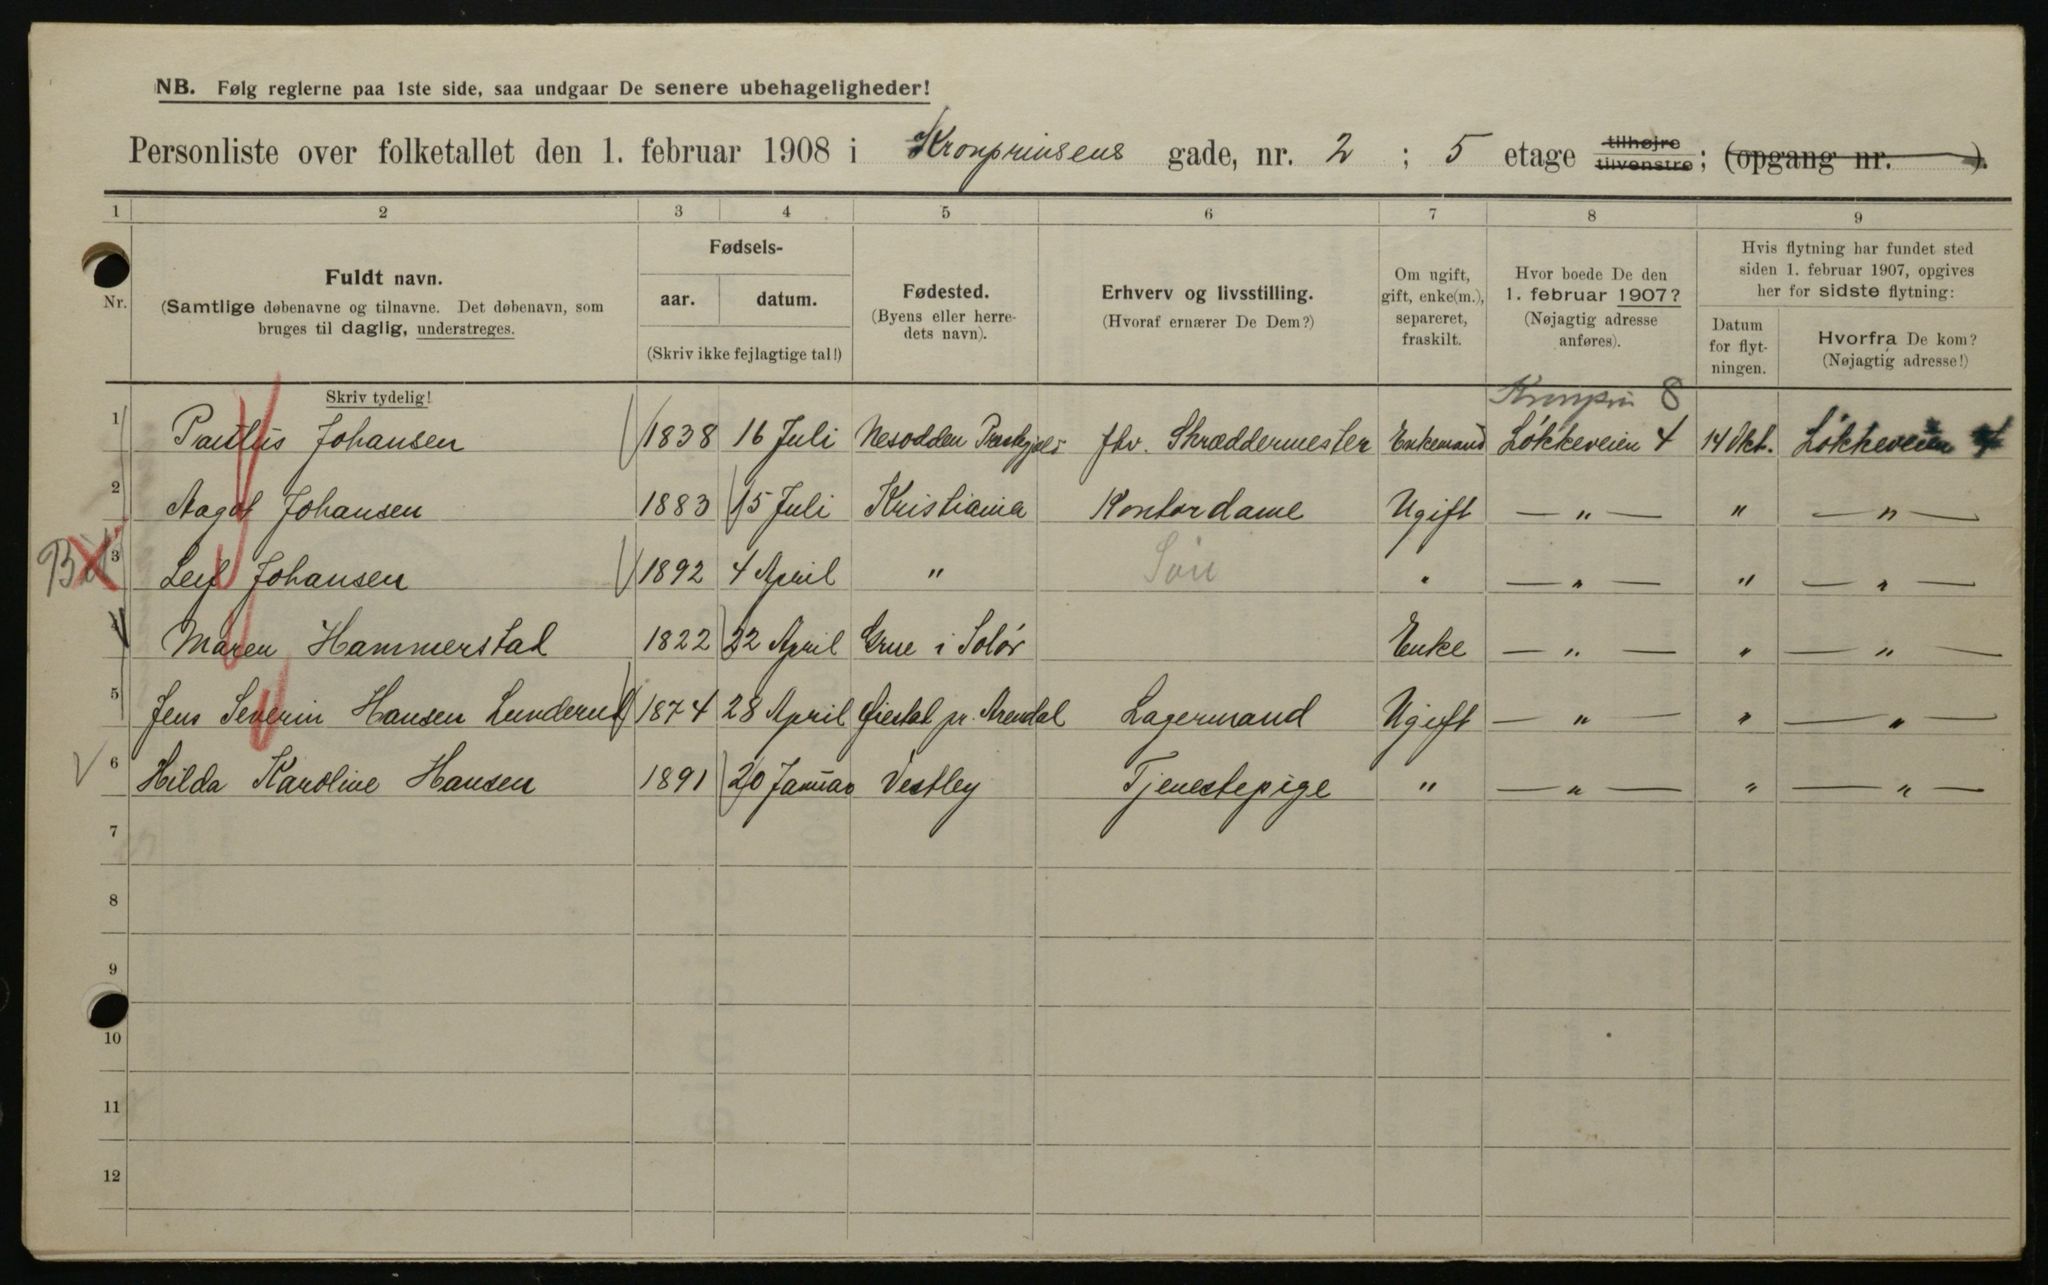 NB. Følg reglerne paa 1ste side, saa undgaar De senere ubehageligheder!
Personliste over folketallet den 1. februar 1908 i Kronprinsens gade, nr. 2 ; 5 etage tilhøjre tilvenstre ; (opgang nr. ).
1 2 3 4 5 6 7 8 9
Nr.
Fuldt navn.
(Samtlige døbenavne og tilnavne. Det døbenavn, som
bruges til daglig, understreges.
Fødsels-
aar. datum.
(Skriv ikke fejlagtige tal!)
Fødested.
(Byens eller herre-
dets navn).
Erhverv og livsstilling.
(Hvoraf ernærer De Dem?)
Om ugift,
gift, enke(m.),
separeret,
fraskilt.
Hvor boede De den
1. februar 1907?
(Nøjagtig adresse
anføres).
Hvis flytning har fundet sted
siden 1. februar 1907, opgives
her for sidste flytning:
Datum
for flyt-
ningen.
Hvorfra De kom?
(Nøjagtig adresse!)
Skriv tydelig!
8
1 Paulus Johansen 1838 16 Juli Nesodden fhv. Skræddermester Enkemand Løkkeveien 4 14 Okt. Løkkeveien 4
2 Aagot Johansen 1883 15 Juli Kristiania Kontordame Ugift — " — " — " —
3 Leif Johansen 1892 4 April " Søn " — " — " — " —
4 Maren Hammerstad 1822 22 April Grue i Solør Enke — " — " — " —
5 Jens Severin Hansen Lunderud 1874 28 April Øiestad pr. Arendal Lagermand Ugift — " — " — " —
6 Hilda Karoline Hansen 1891 20 Januar Vestby Tjenestepige " — " — " — " —
7
8
9
10
11
12